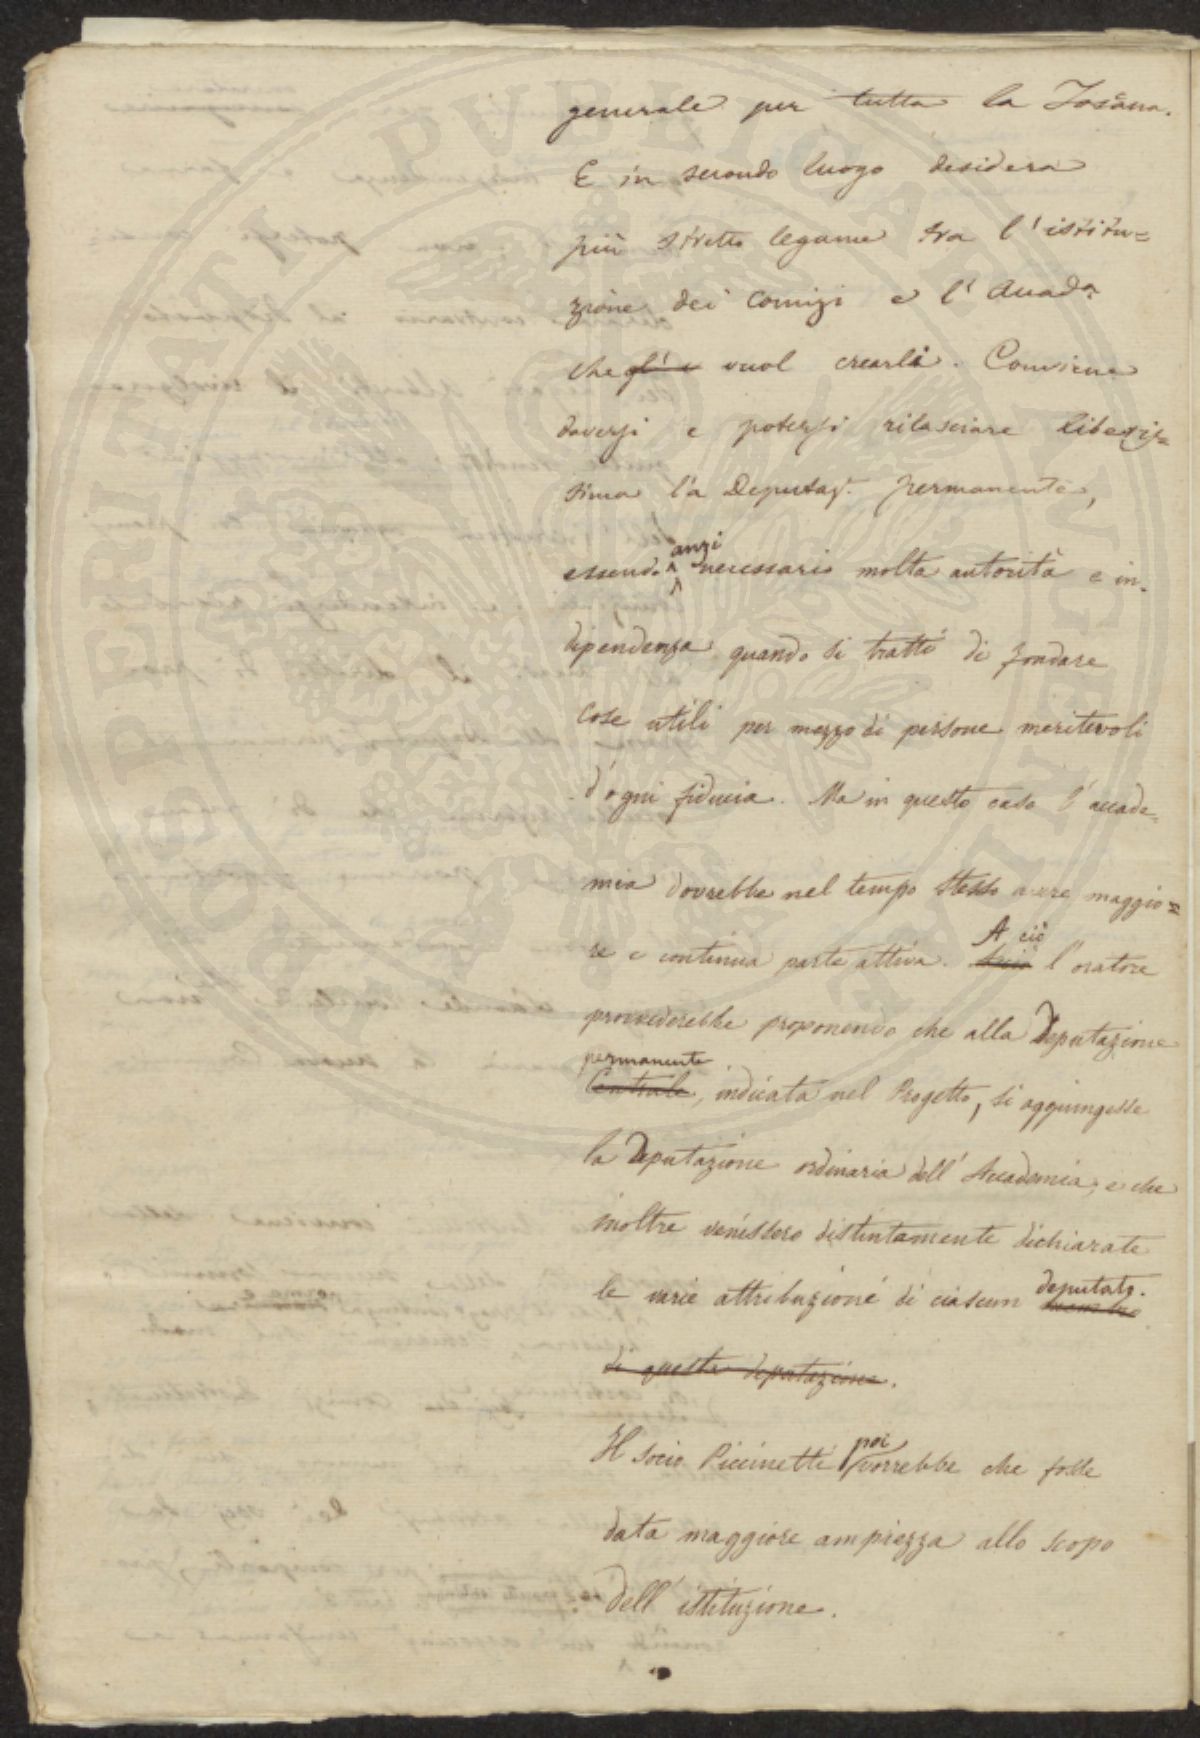 generale per tutta la Toscana.
E in secondo luogo desidera
più stretto legame tra l'istitu=
zione dei Comizi e l'Accad.a
che gl'è vuol crearli. Conviene
doversi e potersi rilasciare liberis=
sima la Deputaz. permanente,
anzi
essendo necessario molta autorità e in-
dipendenza quando si tratti di fondare
cose utili per mezzo di persone meritevoli
d'ogni fiducia. Ma in questo caso l'accade=
mia dovrebbe nel tempo stesso avere maggio=
A ciò
re e continua parte attiva. l'oratore
provvederebbe proponendo che alla Deputazione
permanente
Centrale, indicata nel Progetto, si aggiungesse
la Deputazione ordinaria dell'Accademia, e che
inoltre venissero distintamente dichiarate
deputato.
le varie attribuzioni di ciascun membro
di questa deputazione.
poi
Il socio Piccinetti vorrebbe che fosse
data maggiore ampiezza allo scopo
dell'istituzione.
PROSPERITATI PUBLICAE AUGENDAE